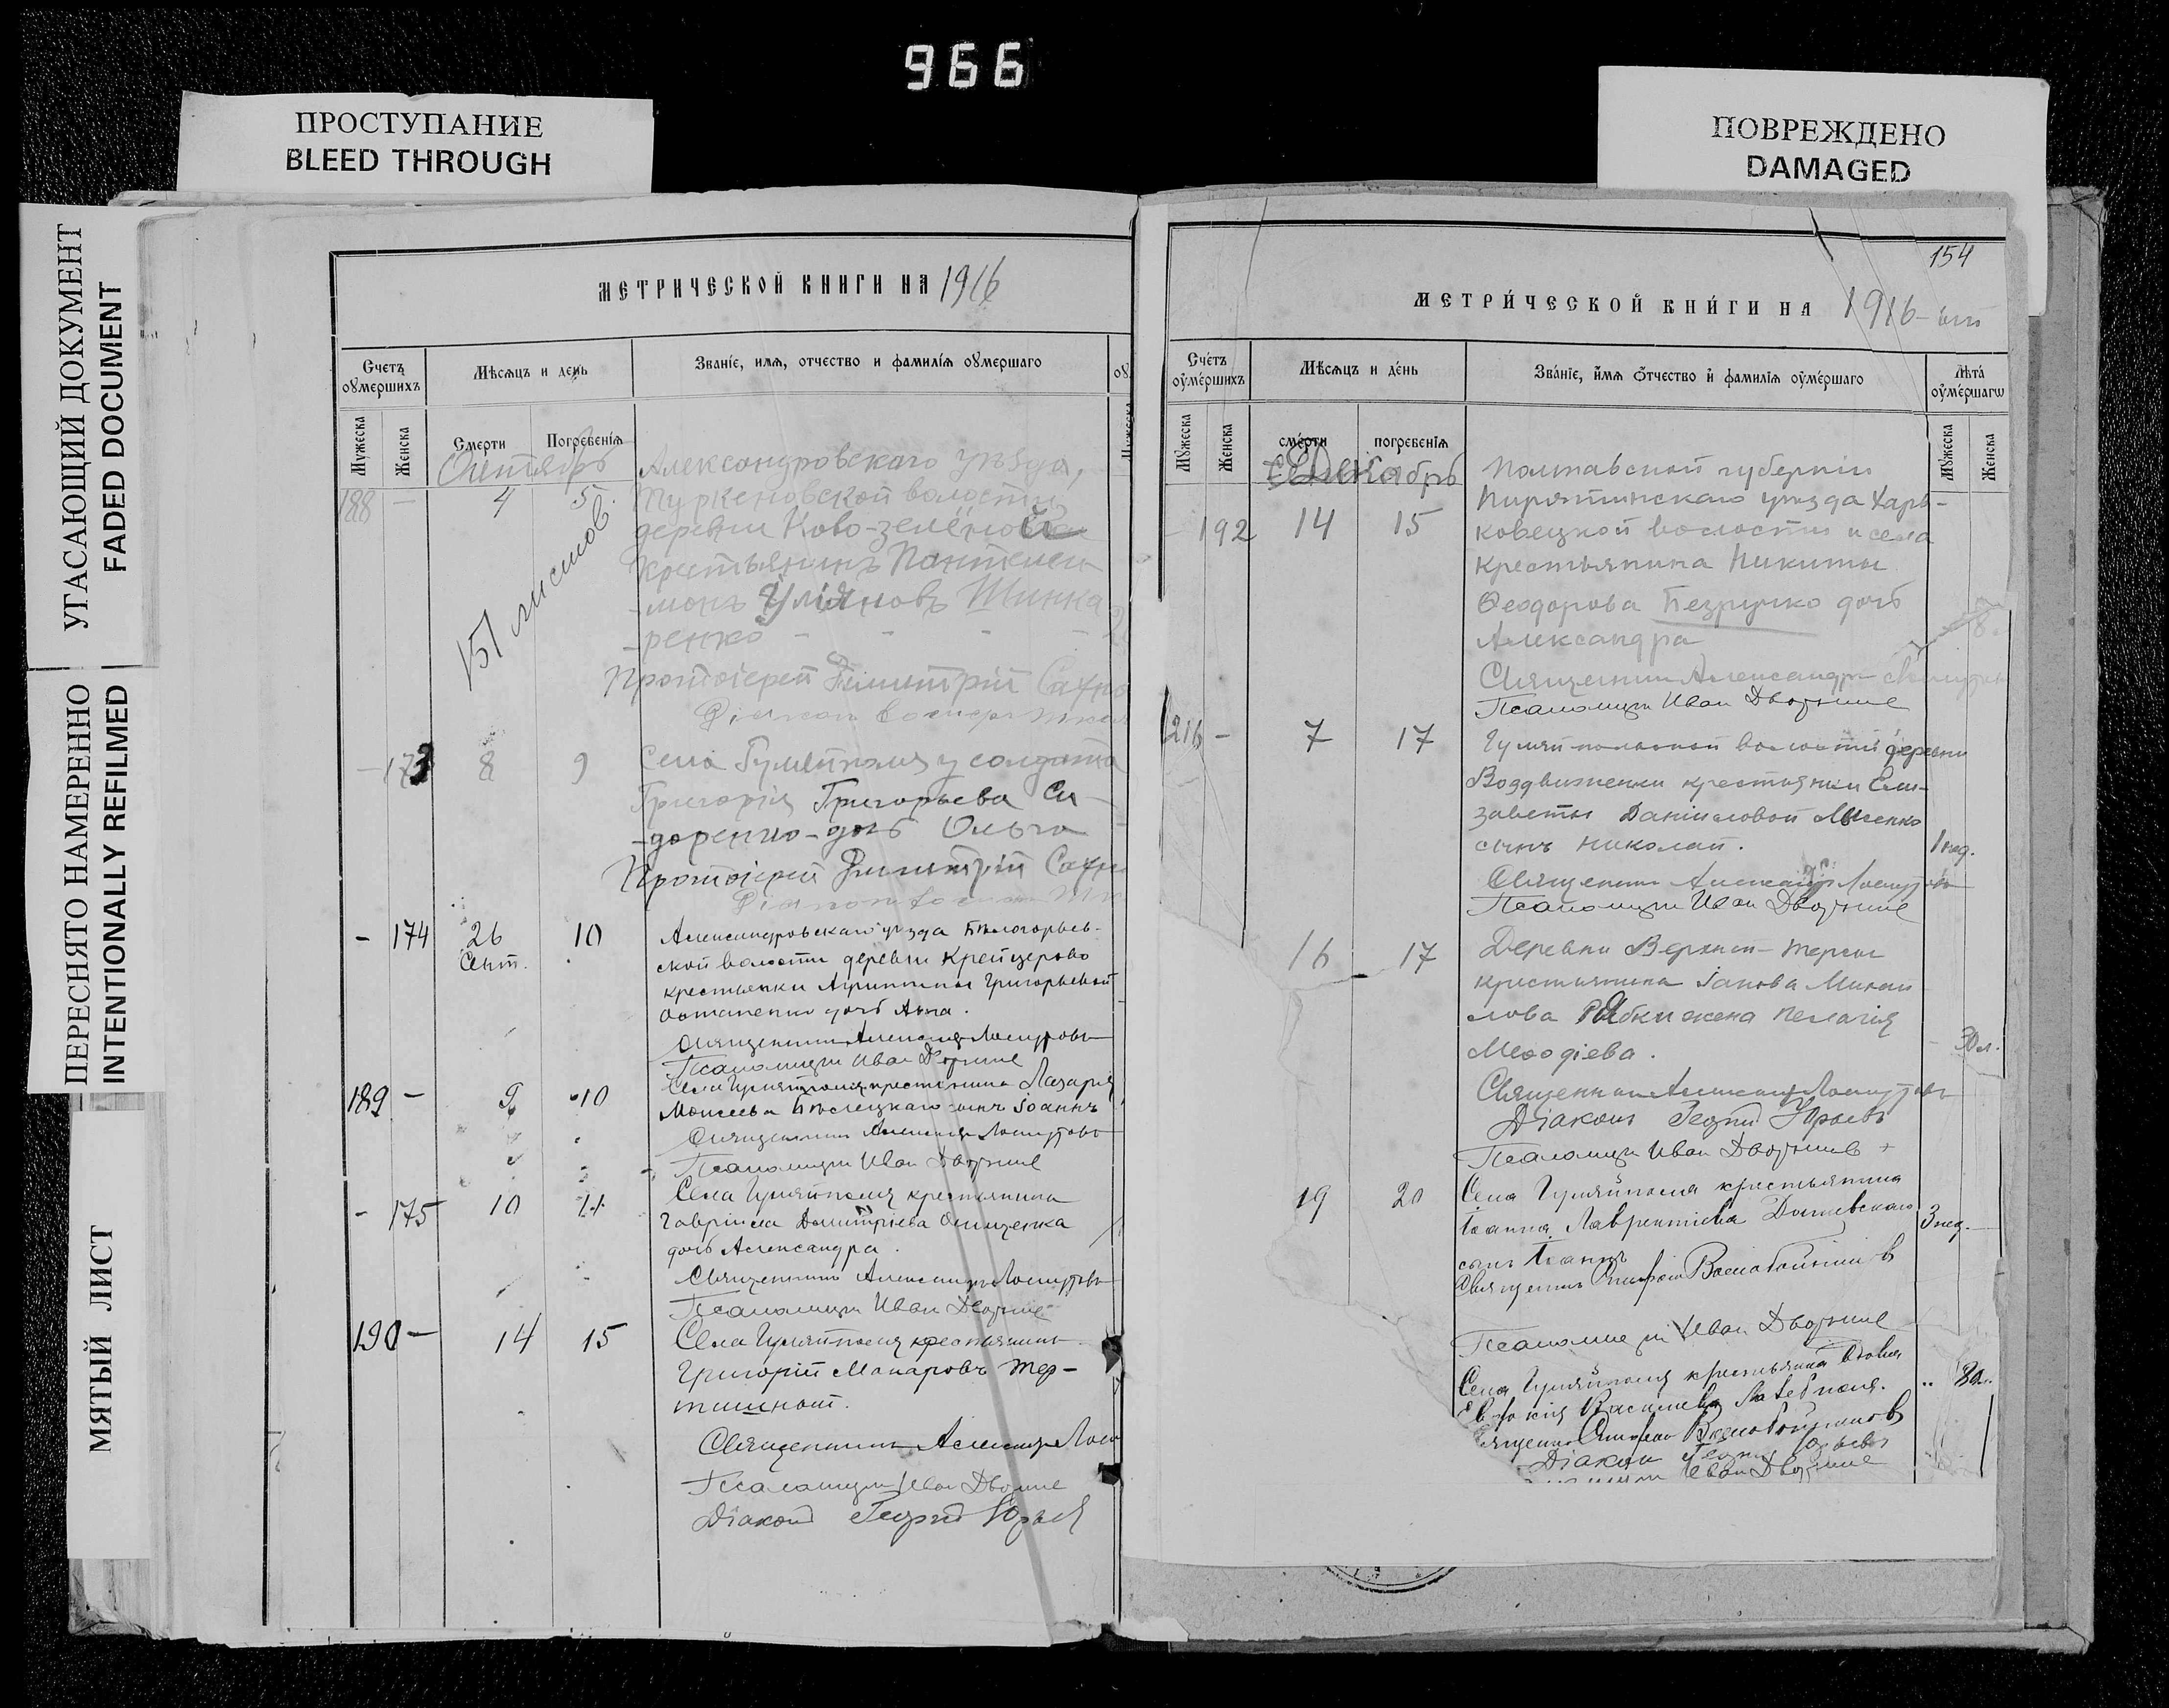 966
ПРОСТУПАНИЕ
BLEED THROUGH
ПОВРЕЖДЕНО
DAMAGED
УГАСАЮЩИЙ ДОКУМЕНТ
FADED DOCUMENT
ПЕРЕСНЯТО НАМЕРЕННО
INTENTIONALLY REFILMED
МЯТЫЙ ЛИСТ
МЕТРИЧЕСКОЙ КНИГИ НА 1916
Счетъ оумершихъ
Мѣсяцъ и день
Званіе, имя, отчество и фамилія оумершаго
Мужеска
Женска
Смерти
Погребенія
Октябрь
188 — 4 5 Александровскаго уѣзда,
Туркеновской волости
деревни Ново-зелёной
крестьянинъ Пантелей-
-монъ Уліяновъ Шинка
-ренко
Протоіерей Димитрій Сахно
Діакон
— 173 8 9 Села Гуляйполя у солдата
Григорія Григорьева Си-
-доренко - дочь Ольга
Протоіерей Димитрій Сахно
- 174 26 Сент. 10 Александровскаго уѣзда Бѣлогорьев-
ской волости деревни Крейцерово
крестьянки Агрипины Григорьевой
Остапенко дочь Анна.
Священникъ Александръ Лоскутовъ
Псаломщик Иван Дворник
189 — 9 10 Села Гуляйполя крестьянина Лазаря
Моисеева Бѣлецкаго сынъ Іоаннъ
Священникъ Александръ Лоскутовъ
Псаломщик Иван Дворник
- 175 10 11 Села Гуляйполя крестьянина
Гавріила Димитріева Онищенка
дочь Александра.
Священникъ Александръ Лоскутовъ
Псаломщик Иван Дворник
190 — 14 15 Села Гуляйполя крестьянинъ
Григорій Макаровъ Тер-
тишной.
Священникъ Александръ Лоску
Псаломщик Иван Дворник
Діаконъ Георгій Юрьев
154
МЕТРИ́ЧЕСКОЙ КНИ́ГИ НА 1916-ый
Сче́тъ оуме́ршихъ
Мѣ́сяцъ и де́нь
Зва́ніе, и́мя о́тчество и фами́лія оуме́ршаго
Лѣта́ оуме́ршагѡ
Мужеска
Женска
сме́рти
погребе́нія
Мужеска
Женска
Декабрь
- 192 14 15 Полтавской губерніи
Пирятинскаго уѣзда Харь-
ковецкой волости и села
крестьянина Никиты
Ѳеодорова Безручко дочь
Александра 8.
Священник Александр Лоскутов
Псаломщик Иван Дворник
216 - 7 17 Гуляйпольской волости деревни
Воздвиженки крестьянки Ели-
заветы Даніиловой Лысенко
сынъ Николай. 1 нед.
Священник Александр Лоскутовъ
Псаломщик Иван Дворник
16 17 Деревни Верхней-Терсы
крестьянина Іакова Михаи
лова Рябки жена Пелагія
Меѳодіева. 30 л.
Священник Александръ Лоскутовъ
Діаконъ Георгій Юрьевъ
Псаломщик Иван Дворник
19 20 Села Гуляйполя крестьянина
Іоанна Лаврентіева Дашевскаго 3 нед.
сынъ Іоаннъ
Священник Воскобойников
Псаломщик Иван Дворник
Села Гуляйполя крестьянка вдова
Евдокія Василиева
Воскобойников
Діакон Георгій Юрьевъ
Иван Дворник